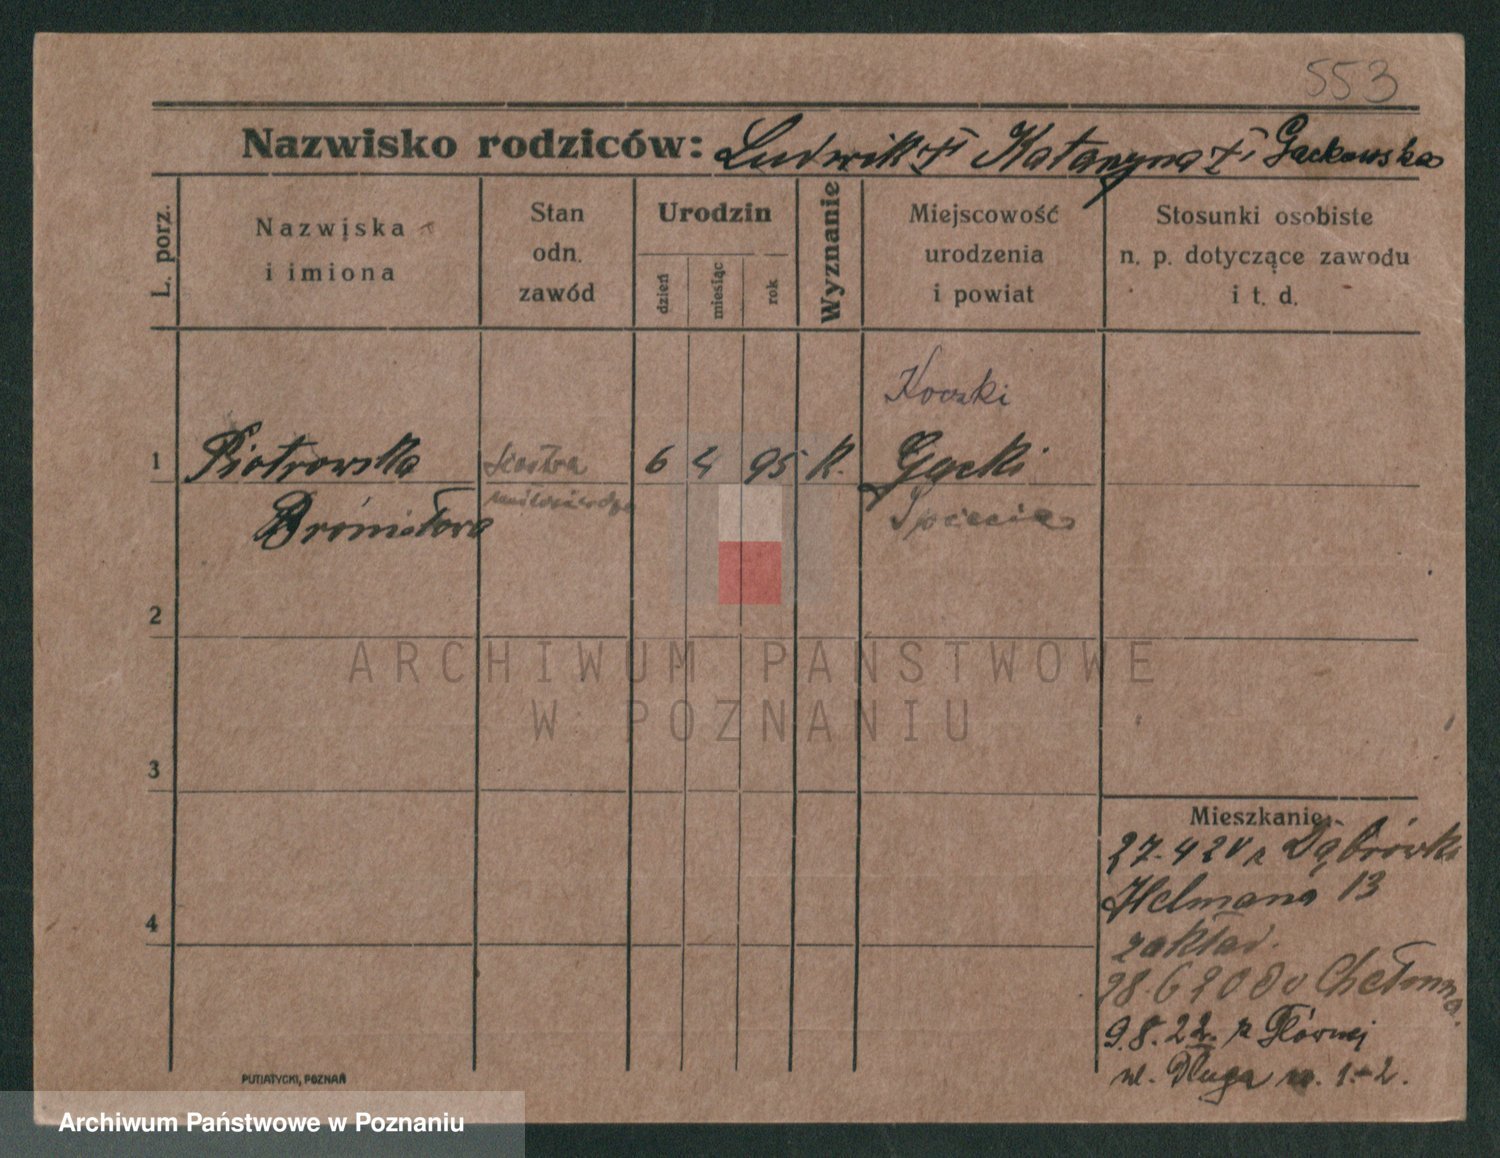 553
Nazwisko rodziców: Ludwik † i Katarzyna † i Gackowska
L. porz.
Nazwiska i imiona
Stan odn. zawód
Urodzin
dzień
miesiąc
rok
Wyznanie
Miejscowość urodzenia i powiat
Stosunki osobiste n. p. dotyczące zawodu i t. d.
Koczki
1 Piotrowska siostra 6 4 95 K. Gącki
Bronisława miłosierdzia
2
3
4
Mieszkanie:
27.4 20 z Dąbrówki
Helmana 13
zakład.
28.6 20 do Chełmna.
9.8.22. z Głównej
ul. Długa nr. 1-2.
PUTIATYCKI, POZNAŃ
ARCHIWUM PAŃSTWOWE
W POZNANIU
Archiwum Państwowe w Poznaniu